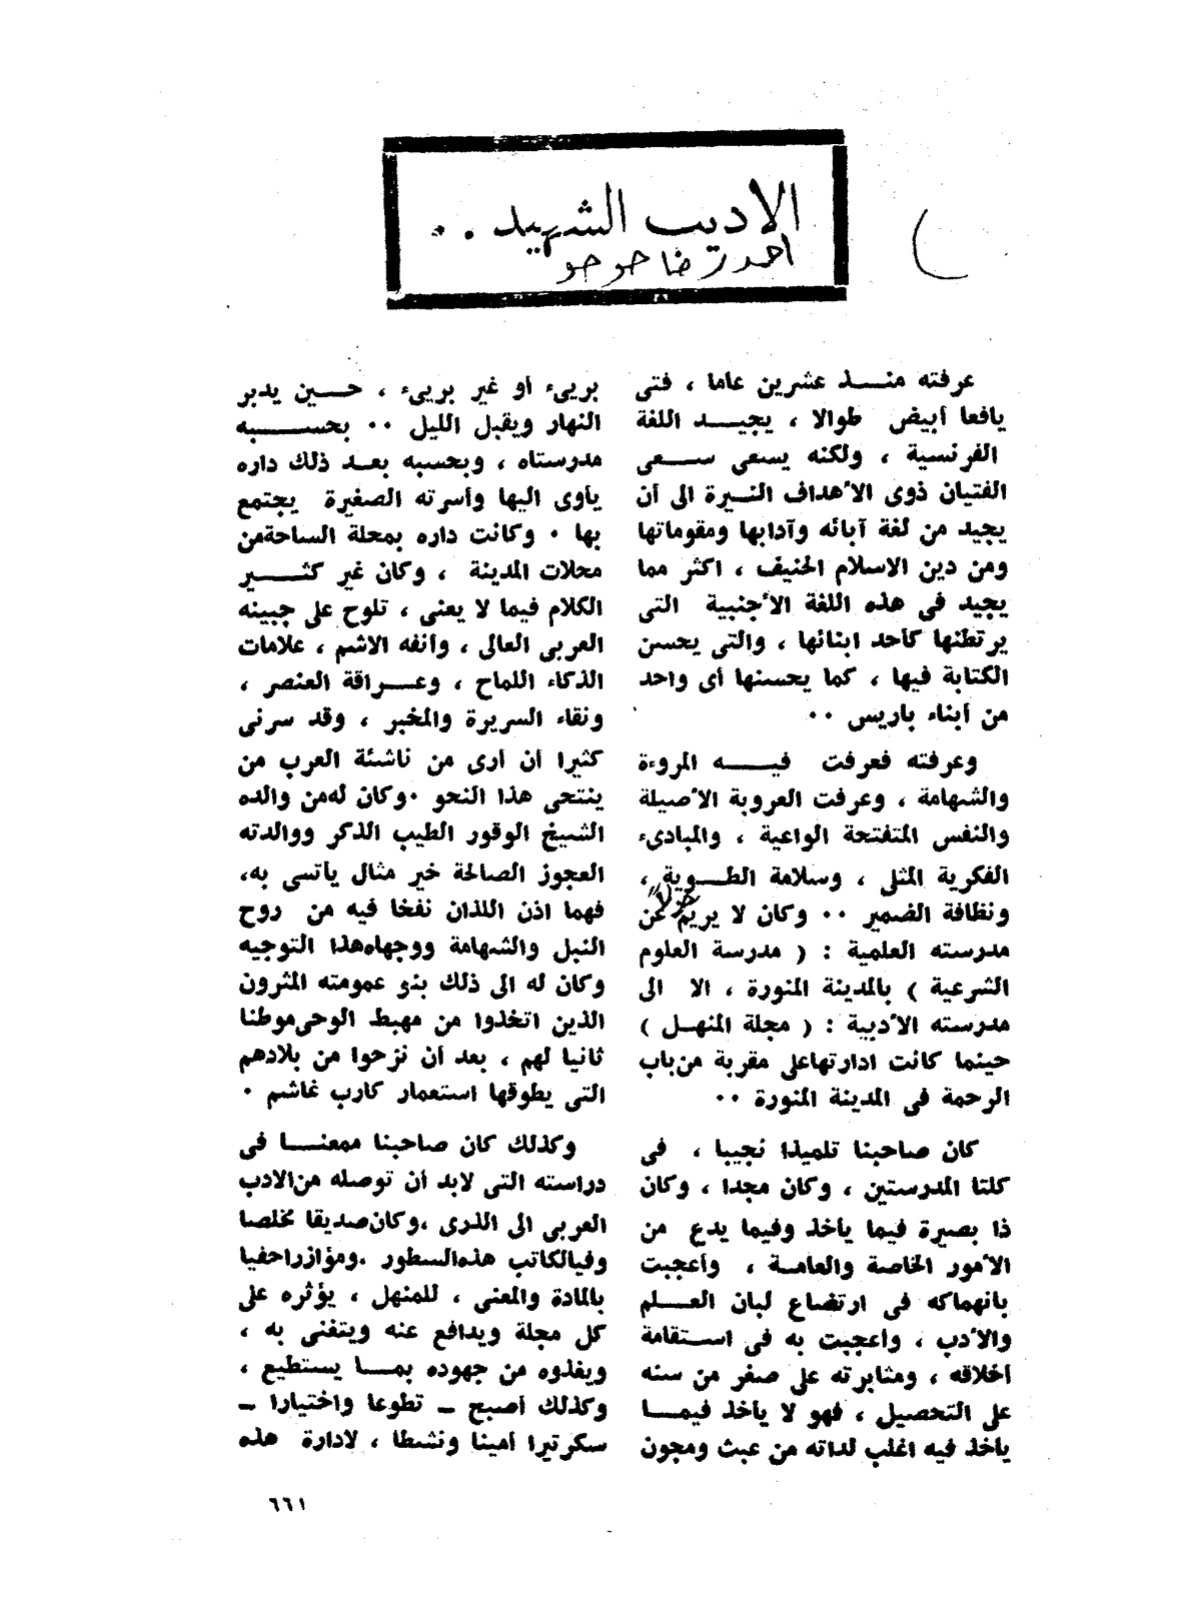 الاديب الشهيد ..
احمد رضا حوحو
عرفته منـــذ عشرين عاما ، فتى
يافعا أبيض طوالا ، يجيـــد اللغة
الفرنسية ، ولكنه يسعى ســـعى
الفتيان ذوى الأهداف النــيرة الى أن
يجيد من لغة آبائه وآدابها ومقوماتها
ومن دين الاسلام الحنيف ، اكثر مما
يجيد فى هذه اللغة الأجنبية التى
يرتطنها كأحد ابنائها ، والتى يحسن
الكتابة فيها ، كما يحسنها أى واحد
من أبناء باريس ..
وعرفته فعرفت فيـــه المروءة
والشهامة ، وعرفت العروبة الأصيلة
والنفس المتفتحة الواعية ، والمبادىء
الفكرية المثلى ، وسلامة الطــوية ،
ونظافة الضمير .. وكان لا يريم عن
مدرسته العلمية : ( مدرسة العلوم
الشرعية ) بالمدينة المنورة ، الا الى
مدرسته الأدبية : ( مجلة المنهــل )
حينما كانت ادارتهاعلى مقربة من‌باب
الرحمة فى المدينة المنورة ..
كان صاحبنا تلميذا نجيبا ، فى
كلتا المدرستين ، وكان مجدا ، وكان
ذا بصيرة فيما يأخذ وفيما يدع من
الأمور الخاصة والعامـة ، وأعجبت
بانهماكه فى ارتضاع لبان العـــلم
والأدب ، وأعجبت به فى استقامة
أخلاقه ، ومثابرته على صغر من سنه
على التحصيل ، فهو لا يأخذ فيمـــا
يأخذ فيه اغلب لداته من عبث ومجون
برىء أو غير برىء ، حـــين يدبر
النهار ويقبل الليل .. بحســـبه
مدرستاه ، وبحسبه بعـد ذلك داره
يأوى اليها وأسرته الصغيرة يجتمع
بها . وكانت داره بمحلة الساحةمن
محلات المدينة ، وكان غير كثـــير
الكلام فيما لا يعنى ، تلوح على جبينه
العربى العالى ، وأنفه الاشم ، علامات
الذكاء اللماح ، وعـــراقة العنصر ،
ونقاء السريرة والمخبر ، وقد سرنى
كثيرا أن أرى من ناشئة العرب من
ينتحى هذا النحو .وكان له‌من والده
الشيخ الوقور الطيب الذكر ووالدته
العجوز الصالحة خير مثال يأتسى به،
فهما اذن اللذان نفخا فيه من روح
النبل والشهامة ووجهاه‌هذا التوجيه
وكان له الى ذلك بنو عمومته المثرون
الذين اتخذوا من مهبط الوحى‌موطنا
ثانيا لهم ، بعد أن نزحوا من بلادهم
التى يطوقها استعمار كارب غاشم .
وكذلك كان صاحبنا ممعنـــا فى
دراسته التى لابد أن توصله من‌الادب
العربى الى الذرى ،وكان‌صديقا مخلصا
وفيالكاتب هذه‌السطور ،ومؤازراحفيا
بالمادة والمعنى ، للمنهل ، يؤثره على
كل مجلة ويدافع عنه ويتغنى به ،
ويغذوه من جهوده بمـــا يستطيع ،
وكذلك أصبح – تطوعا واختيارا –
سكرتيرا أمينا ونشطا ، لادارة هذه
٦٦١